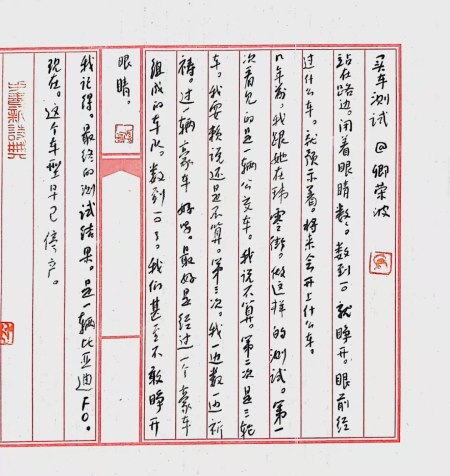 买车测试 @卿荣波
站在路边。闭着眼睛数。数到。就睁开。眼前经
过什么车。就预示着。将来会开上什么车。
几年前。我跟她在街。做这样的测试。第一
次看见的是一辆公交车。我说不算。第二次是三轮
车。我耍赖说还是不算。第三次。我一边数一边祈
祷。过一辆豪车好吗。最好是经过一个豪车
组成的车队。数到了。我们甚至不敢睁开
眼睛。
我记得。最终的测试结果。是一辆比亚迪F0。
现在。这个车型早已停产。
新诗典